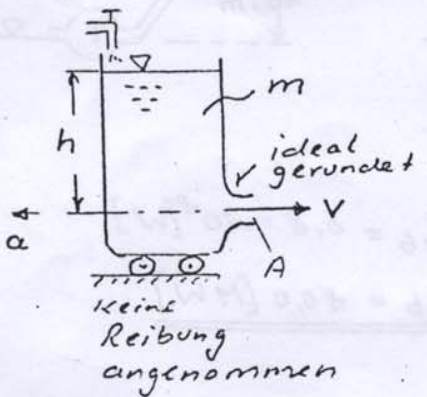 m
h
ideal
gerundet
V
a
A
Keine
Reibung
angenommen